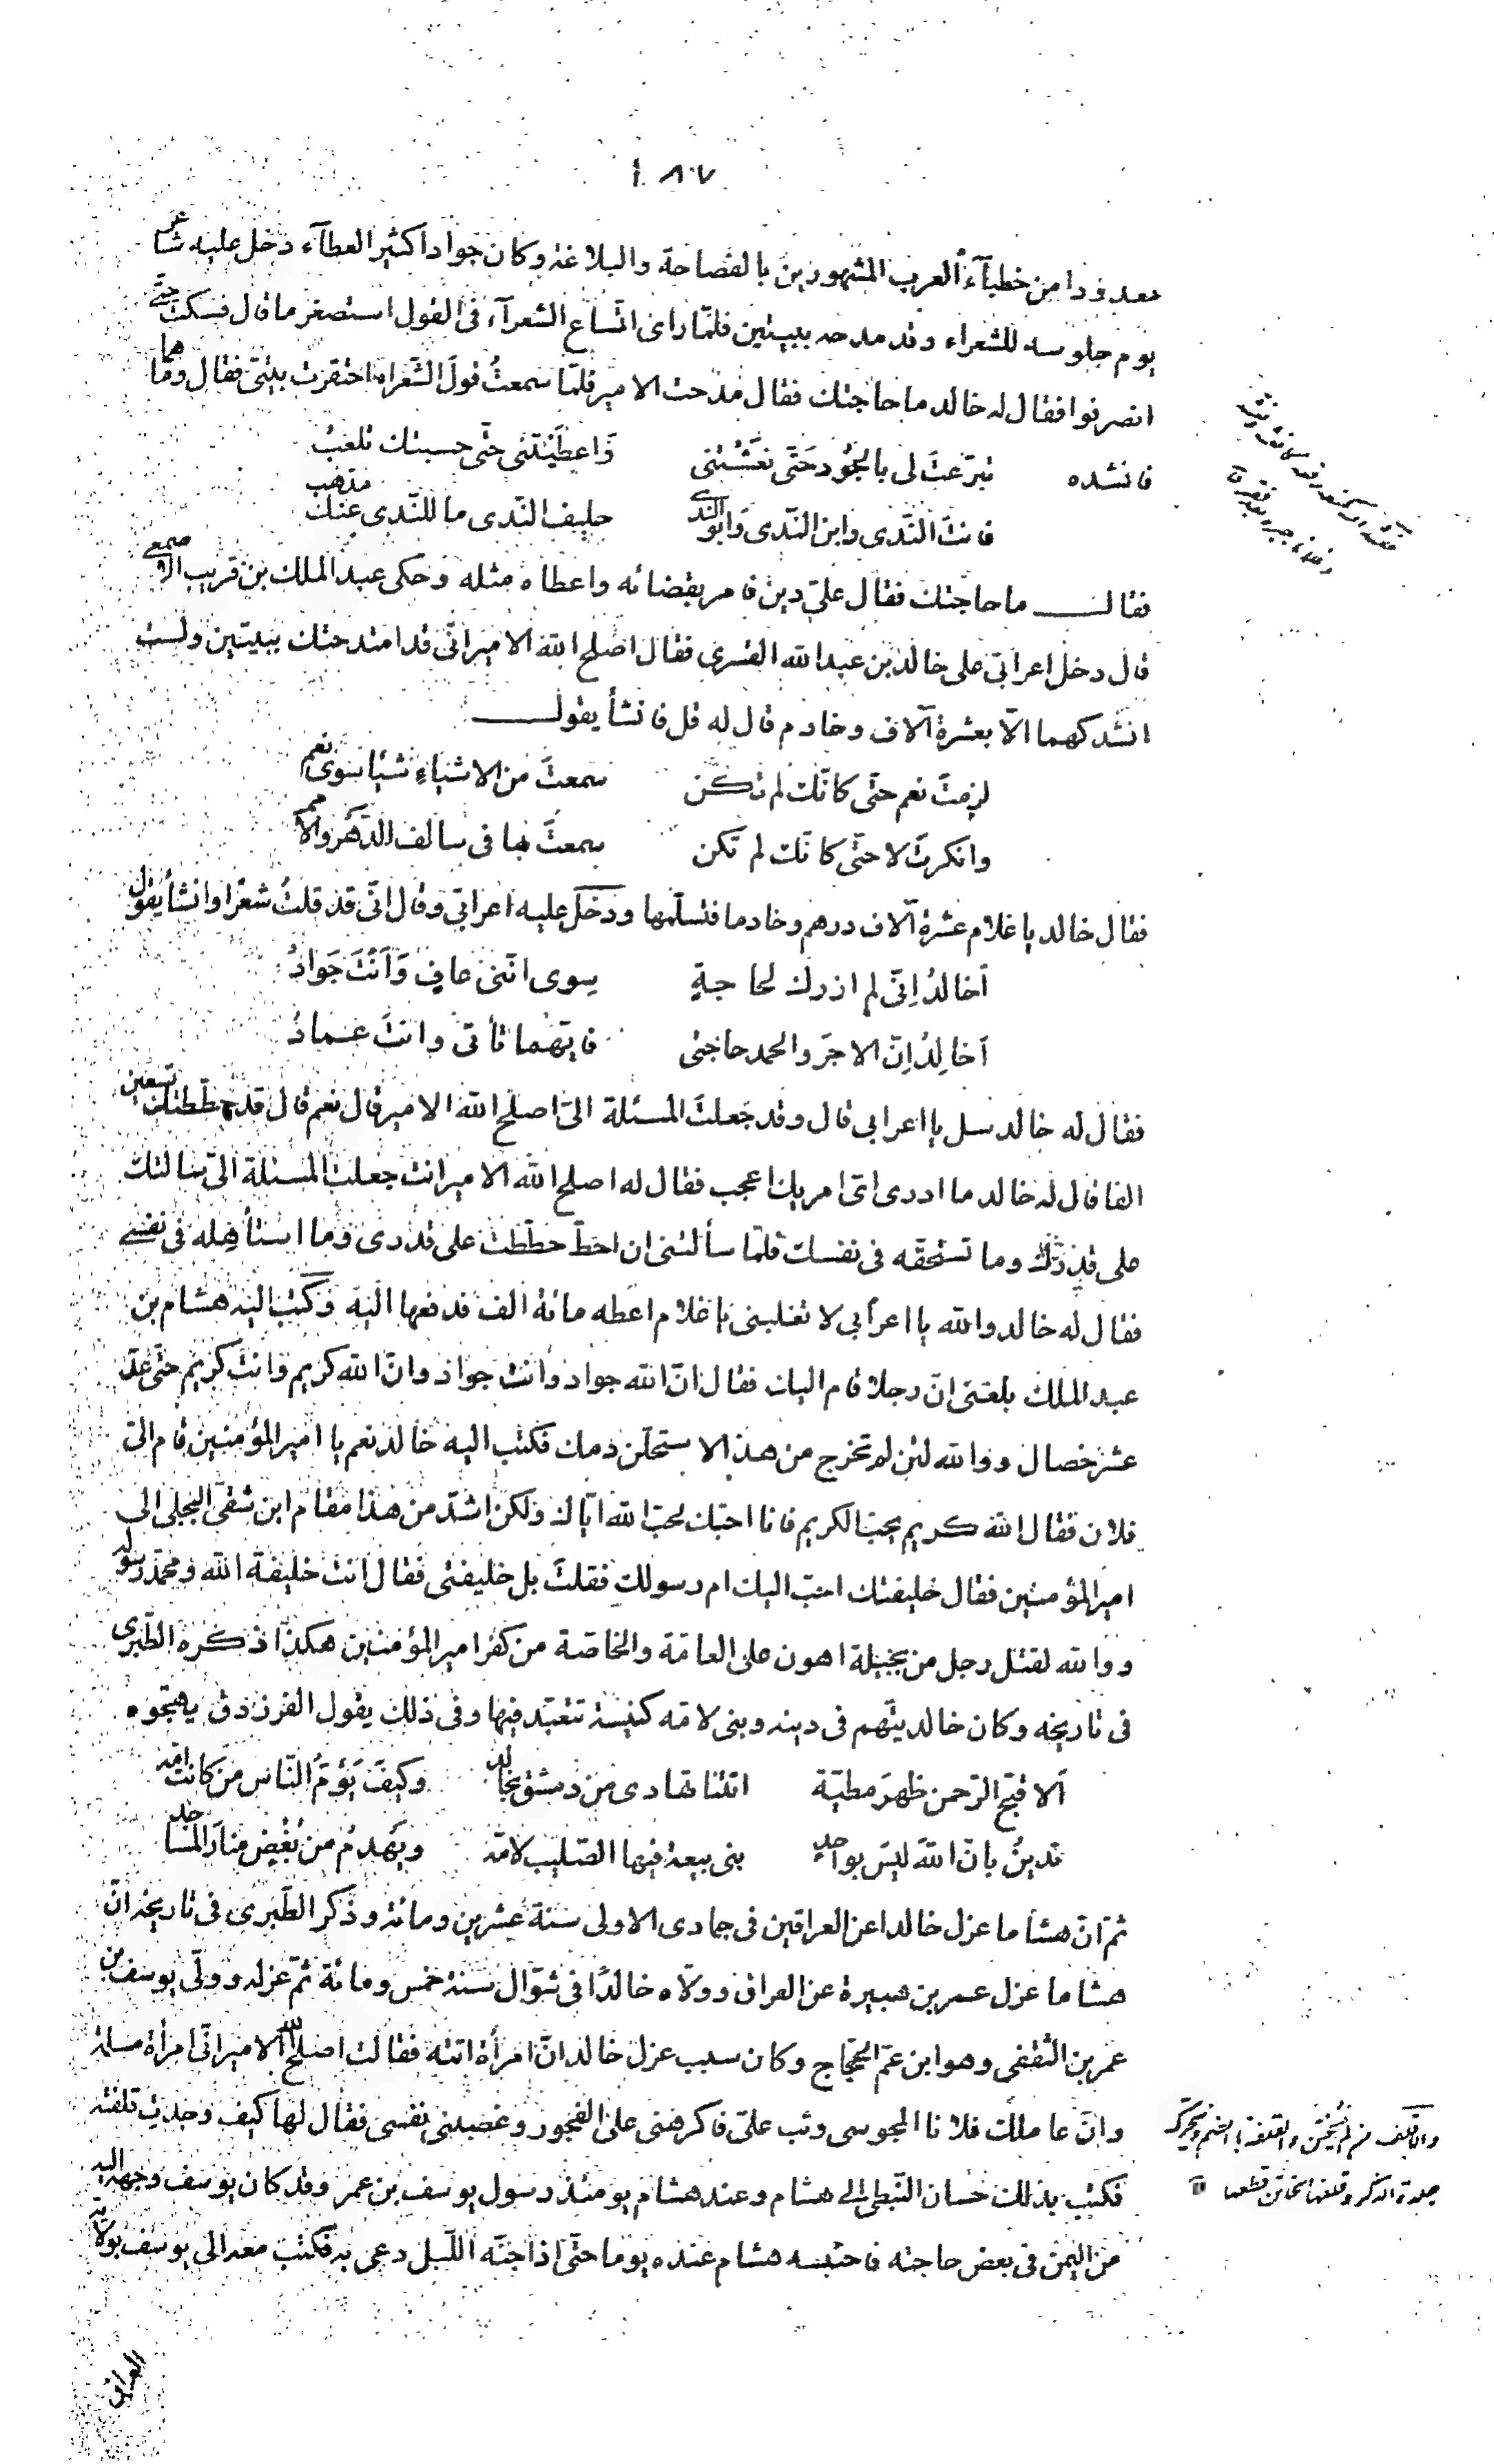 ١٠٨٧
معدودا من خطبآء العرب المشهورين بالفصاحة والبلاغة وكان جوادا كثير العطآء دخل عليه شاعر
يوم جلوسه للشعراء وقد مدحه ببيتين فلمّا رأى اتساع الشعرآء فى القول استصغر ما قال فسكت حتّى
انصرفوا فقال له خالد ما حاجتك فقال مدحت الامير فلمّا سمعتُ قولَ الشّعراء احتقرت بيتىّ فقال وما هما
فانشده تبرّعتَ لى بالجُود حَتّى نعَشْتنى وَاعطَيْتَنى حتّى حسبتك تلعبُ
فانتَ النّدى وابن النّدى وَابو الندى حليف النّدى ما للنّدى عنك مذهب
فقالــــ ما حاجتك فقال علىّ دين فامر بقضائه واعطاه مثله وحكى عبد الملك بن قريب الاصمعى
قال دخل اعرابىّ على خالد بن عبد الله القسرى فقال اصلح الله الامير انّى قد امتدحتك ببيتين ولست
انشدكهما الّا بعشرة آلاف وخادم قال له قل فانشأ يقولــــ
لزمتَ نعم حتّى كانّك لم تكن سمعتَ من الاشياءِ شيئا سوى نعم
وانكرتَ لا حتّى كانّك لم تكن سمعتَ بها فى سالف الدّهر والامم
فقال خالد يا غلام عشرة آلاف درهم وخادما فتسلّمها ودخل عليه اعرابىّ وقال انّى قد قلتُ شعرًا وانشأ يقول
أخالدُ اِنّى لم ازرك لحاجةٍ سوى انّنى عافٍ وَاَنْتَ جَوادُ
اَخالِدُ اِنّ الاجرَ والحمد حاجتى فايّهما تأتى وانتَ عمادُ
فقال له خالد سل يا اعرابى قال وقد جَعلتَ المسئلة الىّ اصلح الله الامير قال نعم قال مائة الف قال اكثرت قال قد حططتك تسعين
الفا قال له خالد ما ادرى اىّ امريك اعجب فقال له اصلح الله الامير انت جعلت المسئلة الىّ سالتك
على قدرك وما تستحقّه فى نفسك فلمّا سألتنى ان احطّ حططت على قدرى وما استأهله فى نفسى
فقال له خالد والله يا اعرابى لا تغلبنى يا غلام اعطه مائة الف فدفعها اليه وكتب اليه هشام بن
عبد الملك بلغنى انّ رجلا قام اليك فقال انّ الله جواد وانت جواد وانّ الله كريم وانت كريم حتّى عدّ
عشر خصال ووالله لئن لم تخرج من هذا لاستحلّن دمك فكتب اليه خالد نعم يا امير المؤمنين قام الىّ
فلان فقال الله كريم يحبّ الكريم فانا احبّك لحبّ الله ايّاك ولكن اشدّ من هذا مقام ابن شقىّ البجلى الى
امير المؤمنين فقال خليفتك احبّ اليك ام رسولك فقلتَ بل خليفتى فقال انت خليفة الله ومحمّد رسوله
ووالله لقتل رجل من بجيلة اهون على العامّة والخاصّة من كفر امير المؤمنين هكذا ذكره الطّبرى
فى تاريخه وكان خالد يتّهم فى دينه وبنى لامّه كنيسة تتعبّد فيها وفى ذلك يقول الفرزدق يهجوه
اَلا قبّح الرّحمن ظهرَ مطيّة اتتنا تهادى من دمشق بخالد وكيفَ يَؤمّ النّاس من كانت امّه
تدينُ بانّ اللهَ ليسَ بواحدٍ بنى بيعة فيها الصّليب لامّه ويَهدمُ من بُغْضٍ منارَ المساجد
ثمّ انّ هشاما عزل خالدا عن العراقين فى جمادى الاولى سنة عشرين ومائة وذكر الطّبرى فى تاريخه انّ
هشاما عزل عمر بن هبيرة عن العراق وولّاه خالدًا فى شوّال سنة خمس ومائة ثمّ عزله وولّى يوسف بن
عمر بن الثقفى وهو ابن عمّ الحجّاج وكان سبب عزل خالد انّ امرأة اتته فقالت اصلح الله الامير انّى امرأة مسلمة
وانّ عاملك فلانا المجوسى وثب علىّ فاكرهنى على الفجور وغصبنى نفسى فقال لها كيف وجدت قلفته
فكتب بذلك حسان النّبطى الى هشام وعند هشام يومئذ رسول يوسف بن عمر وقد كان يوسف وجهه اليه
من اليمن فى بعض حاجته فاحتبسه هشام عنده يوما حتّى اذا جنّه اللّيل دعى به فكتب معه الى يوسف بولاية
والاقلف من لم يختن والقلفة بالضم ويحرك
جلدة الذكر وقلفها الخاتن قطعها
العراق